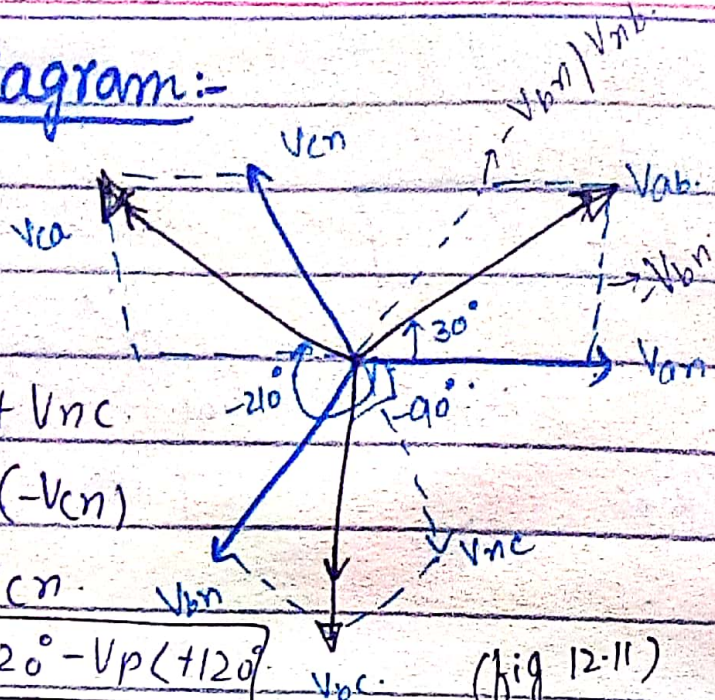 agram:-
-Vbn/Vnb.
Vcn
Vab.
Vca
→-Vbn
30°
Van
-210°
-90°.
+ Vnc.
(-Vcn)
Vnc
cn.
Vbn
20° - Vp<+120°
Vbc.
(fig 12.11)